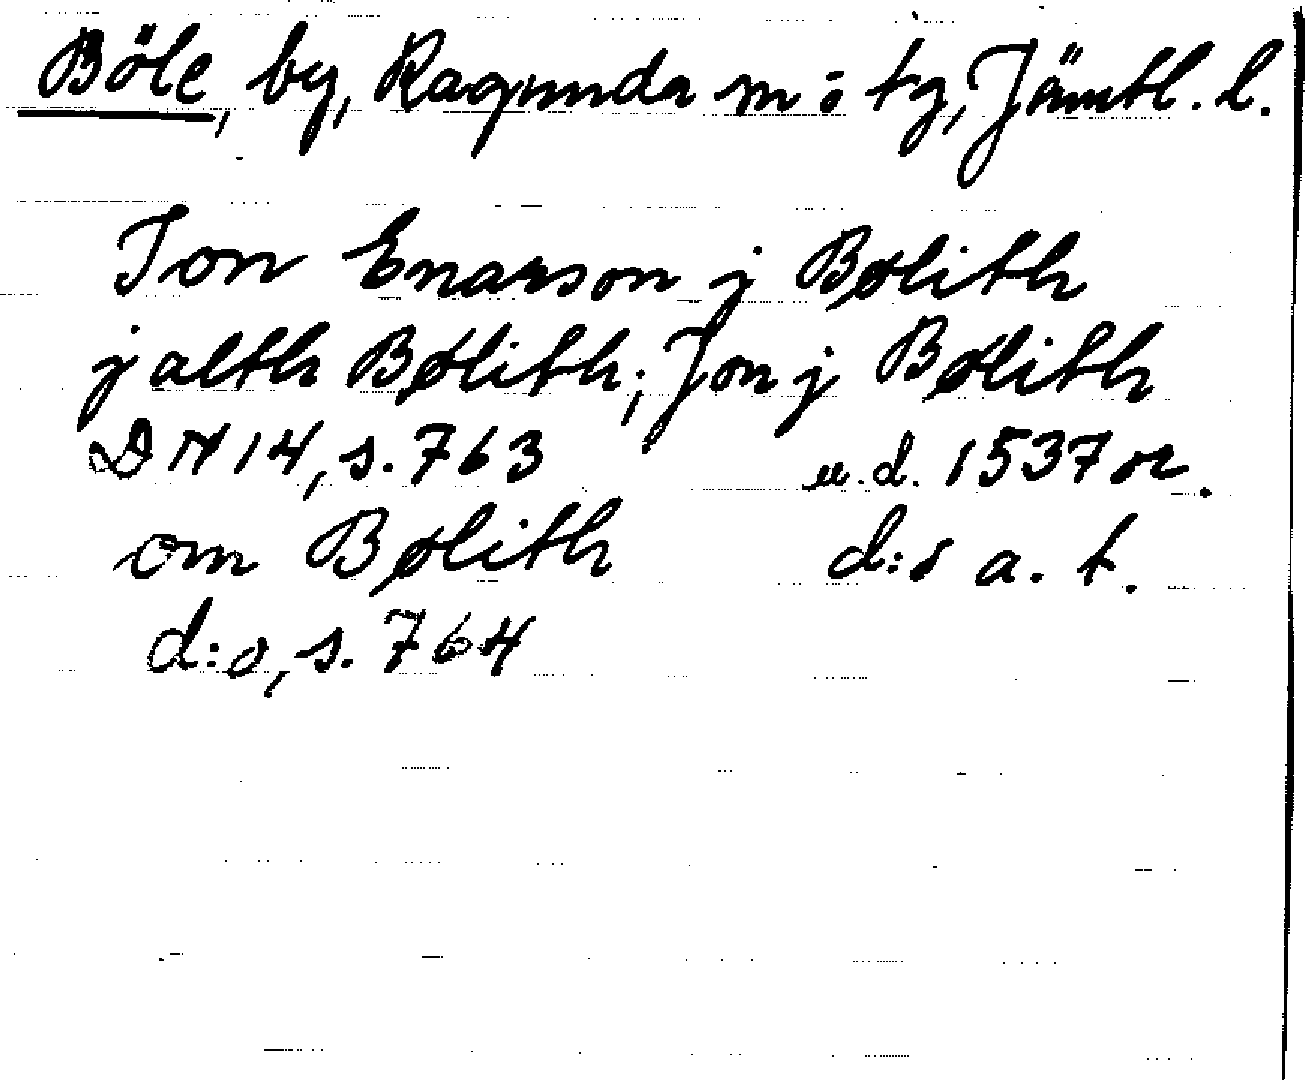 Böle, by, Ragunda sn ö tg, Jämtl. l.
Jon Enarson j Bølith
j alth Bølith; Jon j Bølith
DN 14, s. 763 u.d. 1537 or.
om Bølith d:o a. t.
d:o, s. 764